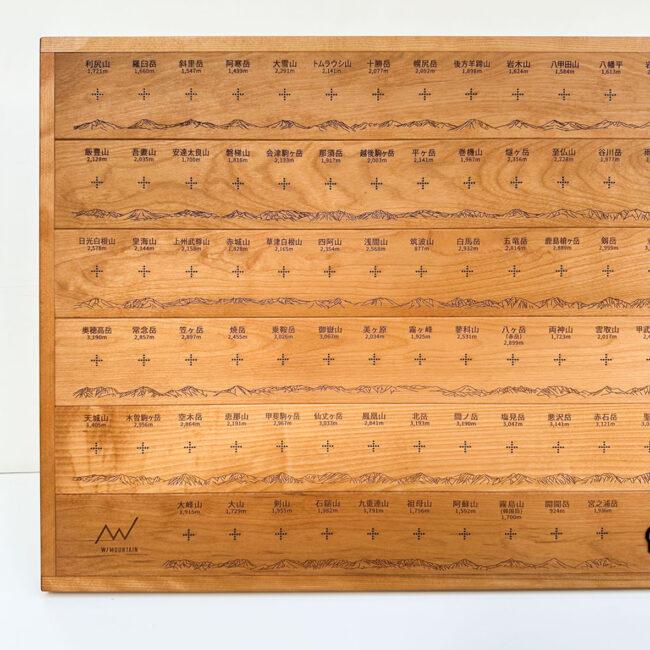 利尻山 羅臼岳 斜里岳 阿寒岳 大雪山 トムラウシ山 十勝岳 幌尻岳 後方羊蹄山 岩木山 八甲田山 八幡平
1,721m 1,660m 1,547m 1,499m 2,291m 2,141m 2,077m 2,052m 1,898m 1,624m 1,584m 1,613m
飯豊山 吾妻山 安達太良山 磐梯山 会津駒ヶ岳 那須岳 越後駒ヶ岳 平ヶ岳 巻機山 燧ヶ岳 至仏山 谷川岳
2,128m 2,035m 1,700m 1,816m 2,133m 1,917m 2,003m 2,141m 1,967m 2,356m 2,228m 1,977m
日光白根山 皇海山 上州武尊山 赤城山 草津白根山 四阿山 浅間山 筑波山 白馬岳 五竜岳 鹿島槍ヶ岳 剱岳
2,578m 2,144m 2,158m 1,828m 2,165m 2,354m 2,568m 877m 2,932m 2,814m 2,889m 2,999m
奥穂高岳 常念岳 笠ヶ岳 焼岳 乗鞍岳 御嶽山 美ヶ原 霧ヶ峰 蓼科山 八ヶ岳 両神山 雲取山
(赤岳)
3,190m 2,857m 2,897m 2,455m 3,026m 3,067m 2,034m 1,925m 2,531m 2,899m 1,723m 2,017m
天城山 木曽駒ヶ岳 空木岳 恵那山 甲斐駒ヶ岳 仙丈ヶ岳 鳳凰山 北岳 間ノ岳 塩見岳 悪沢岳 赤石岳
1,405m 2,956m 2,864m 2,191m 2,967m 3,033m 2,841m 3,193m 3,190m 3,047m 3,141m 3,121m
大峰山 大山 剣山 石鎚山 九重連山 祖母山 阿蘇山 霧島山 開聞岳 宮之浦岳
(韓国岳)
1,915m 1,729m 1,955m 1,982m 1,791m 1,756m 1,592m 1,700m 924m 1,936m
W/MOUNTAIN